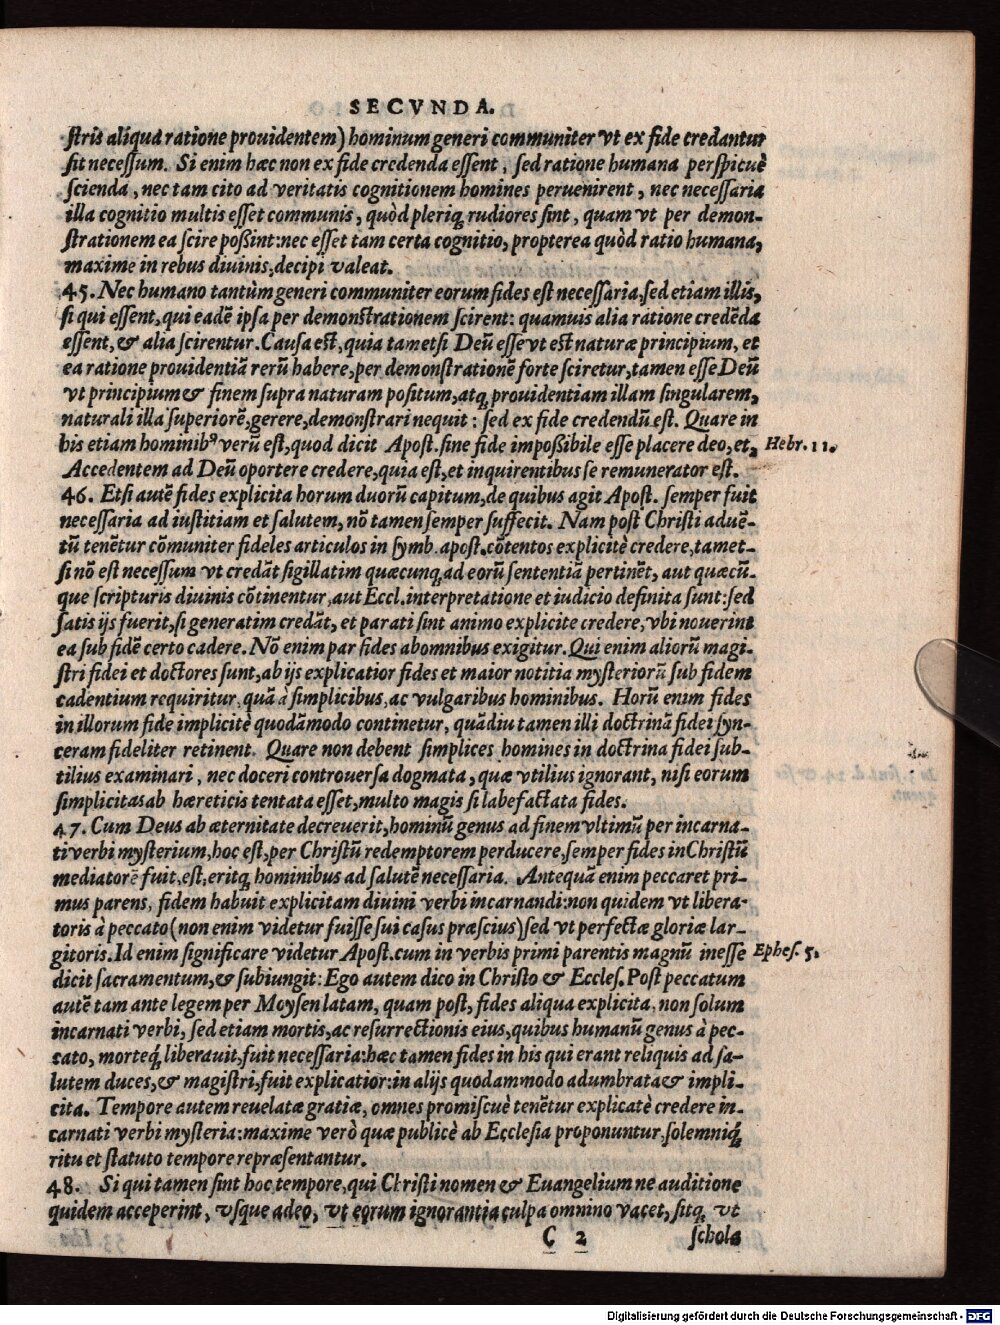 SECVNDA.
ſtris aliqua ratione prouidentem) hominum generi communiter vt ex fide credantur
ſit neceſſum. Si enim hæc non ex fide credenda eſſent, ſed ratione humana perſpicuè
ſcienda, nec tam cito ad veritatis cognitionem homines peruenirent, nec neceſſaria
illa cognitio multis eſſet communis, quòd pleriq; rudiores ſint, quam vt per demon-
ſtrationem ea ſcire poßint: nec eſſet tam certa cognitio, propterea quòd ratio humana,
maxime in rebus diuinis, decipi valeat.
45. Nec humano tantùm generi communiter eorum fides eſt neceſſaria, ſed etiam illis,
ſi qui eſſent, qui eadē ipſa per demonſtrationem ſcirent: quamuis alia ratione credēda
eſſent, & alia ſcirentur. Cauſa eſt, quia tametſi Deū eſſe vt eſt naturæ principium, et
ea ratione prouidentiā rerū habere, per demonſtrationē forte ſciretur, tamen eſſe Deū
vt principium & finem ſupra naturam poſitum, atq; prouidentiam illam ſingularem,
naturali illa ſuperiorē, gerere, demonſtrari nequit: ſed ex fide credendū eſt. Quare in
his etiam hominibꝰ verū eſt, quod dicit Apoſt. ſine fide impoßibile eſſe placere deo, et, Hebr. 11.
Accedentem ad Deū oportere credere, quia eſt, et inquirentibus ſe remunerator eſt.
46. Etſi autē fides explicita horum duorū capitum, de quibus agit Apoſt. ſemper fuit
neceſſaria ad iuſtitiam et ſalutem, nō tamen ſemper ſuffecit. Nam poſt Chriſti aduē-
tū tenētur cōmuniter fideles articulos in ſymb. apoſt. cōtentos explicitè credere, tamet-
ſi nō eſt neceſſum vt credāt ſigillatim quæcunq; ad eorū ſententiā pertinēt, aut quæcū-
que ſcripturis diuinis cōtinentur, aut Eccl. interpretatione et iudicio definita ſunt: ſed
ſatis ijs fuerit, ſi generatim credāt, et parati ſint animo explicite credere, vbi nouerint
ea ſub fidē certo cadere. Nō enim par fides ab omnibus exigitur. Qui enim aliorū magi-
ſtri fidei et doctores ſunt, ab ijs explicatior fides et maior notitia myſteriorū ſub fidem
cadentium requiritur, quā à ſimplicibus, ac vulgaribus hominibus. Horū enim fides
in illorum fide implicitè quodāmodo continetur, quādiu tamen illi doctrinā fidei ſyn-
ceram fideliter retinent. Quare non debent ſimplices homines in doctrina fidei ſub-
tilius examinari, nec doceri controuerſa dogmata, quæ vtilius ignorant, niſi eorum
ſimplicitas ab hæreticis tentata eſſet, multo magis ſi labefactata fides.
47. Cum Deus ab æternitate decreuerit, hominū genus ad finem vltimū per incarna-
ti verbi myſterium, hoc eſt, per Chriſtū redemptorem perducere, ſemper fides in Chriſtū
mediatorē fuit, eſt, eritq; hominibus ad ſalutē neceſſaria. Antequā enim peccaret pri-
mus parens, fidem habuit explicitam diuini verbi incarnandi: non quidem vt libera-
toris à peccato (non enim videtur fuiſſe ſui caſus præſcius) ſed vt perfectæ gloriæ lar-
gitoris. Id enim ſignificare videtur Apoſt. cum in verbis primi parentis magnū ineſſe Epheſ. 5.
dicit ſacramentum, & ſubiungit: Ego autem dico in Chriſto & Eccleſ. Poſt peccatum
autē tam ante legem per Moyſen latam, quam poſt, fides aliqua explicita, non ſolum
incarnati verbi, ſed etiam mortis, ac reſurrectionis eius, quibus humanū genus à pec-
cato, morteq́; liberauit, fuit neceſſaria: hæc tamen fides in his qui erant reliquis ad ſa-
lutem duces, & magiſtri, fuit explicatior: in alijs quodammodo adumbrata & impli-
cita. Tempore autem reuelatæ gratiæ, omnes promiſcuè tenētur explicatè credere in-
carnati verbi myſteria: maxime verò quæ publicè ab Eccleſia proponuntur, ſolemniq́;
ritu et ſtatuto tempore repræſentantur.
48. Si qui tamen ſint hoc tempore, qui Chriſti nomen & Euangelium ne auditione
quidem acceperint, vſque adeo, vt eorum ignorantia culpa omnino vacet, ſitq; vt
C 2 ſchola
Digitalisierung gefördert durch die Deutsche Forschungsgemeinschaft - DFG